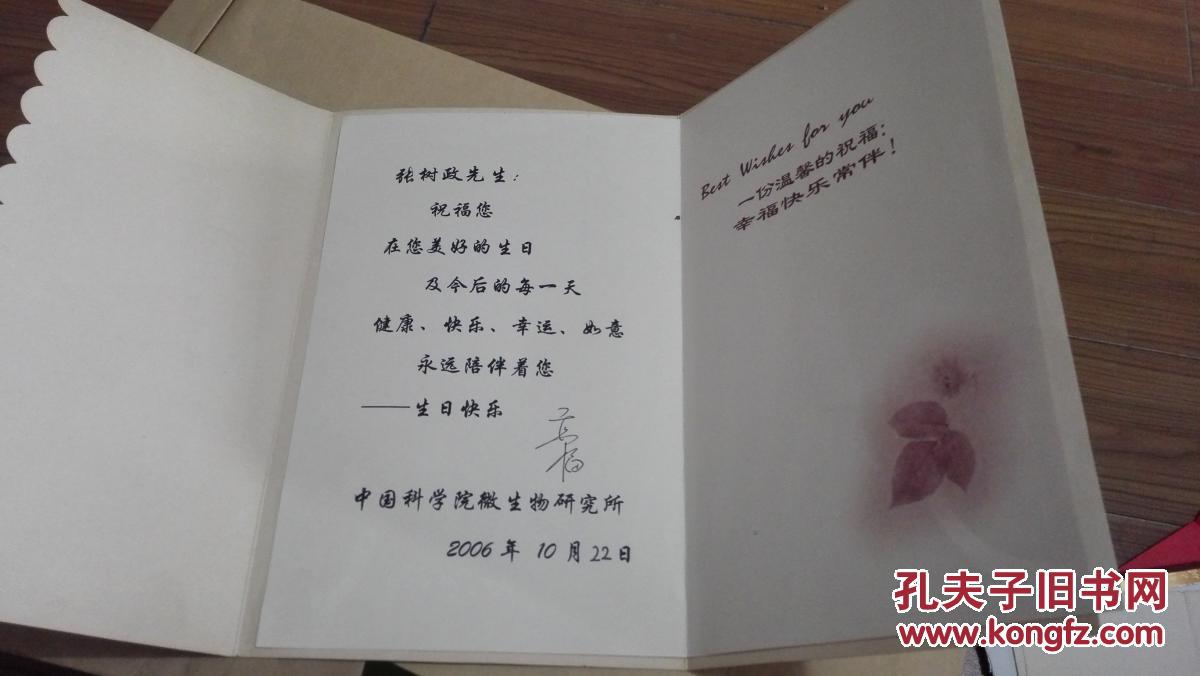 张树政先生：
祝福您
在您美好的生日
及今后的每一天
健康、快乐、幸运、如意
永远陪伴着您
——生日快乐
高福
中国科学院微生物研究所
2006年10月22日
Best Wishes for you
一份温馨的祝福：
幸福快乐常伴！
孔夫子旧书网
www.kongfz.com